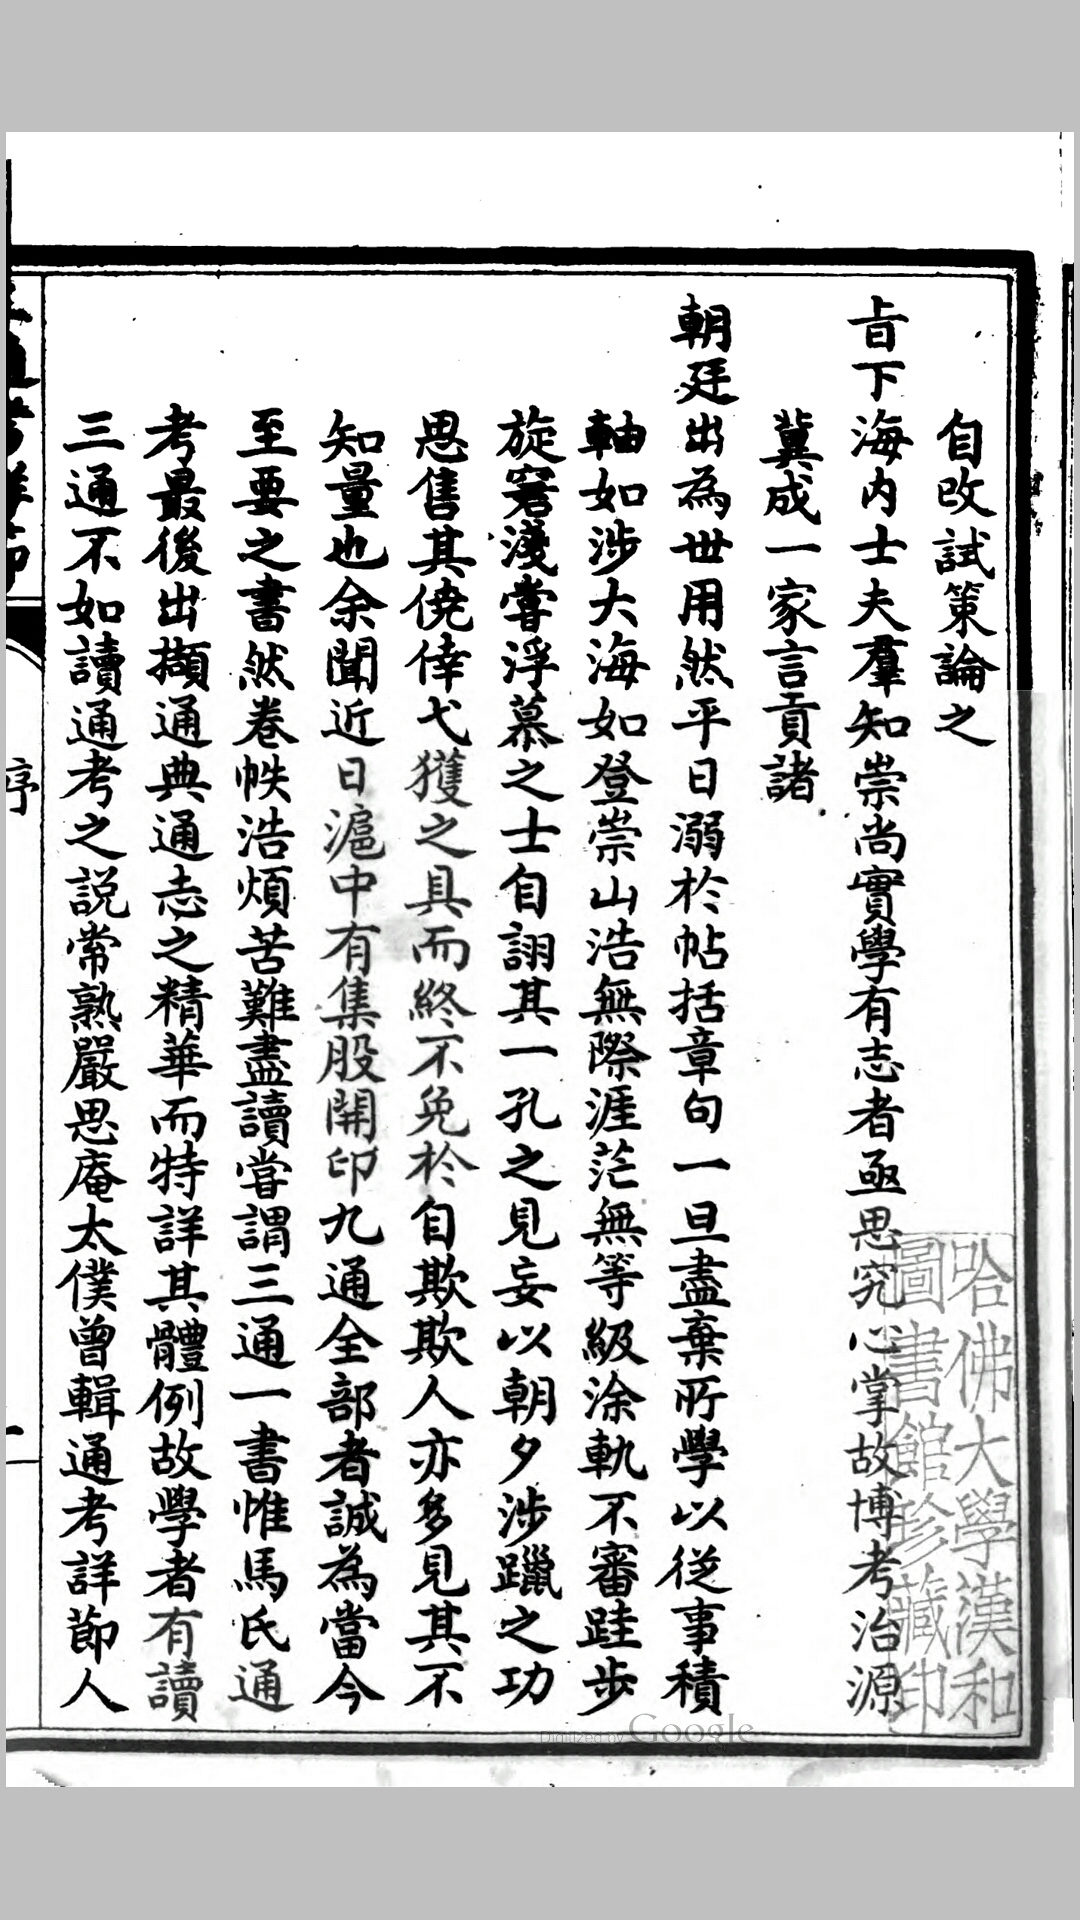 自改試策論之
旨下海內士夫羣知崇尚實學有志者亟思究心掌故博考治源
冀成一家言貢諸
朝廷出為世用然平日溺於帖括章句一旦盡棄所學以從事積
軸如涉大海如登崇山浩無際涯茫無等級涂軌不審跬步
旋窘淺嘗浮慕之士自詡其一孔之見妄以朝夕涉躐之功
思售其僥倖弋獲之具而終不免於自欺欺人亦多見其不
知量也余聞近日滬中有集股開印九通全部者誠為當今
至要之書然卷帙浩煩苦難盡讀嘗謂三通一書惟馬氏通
考最後出擷通典通志之精華而特詳其體例故學者有讀
三通不如讀通考之說常熟嚴思庵太僕曾輯通考詳節人
通考詳節
序
一
哈佛大學漢和
圖書館珍藏印
Digitized by Google